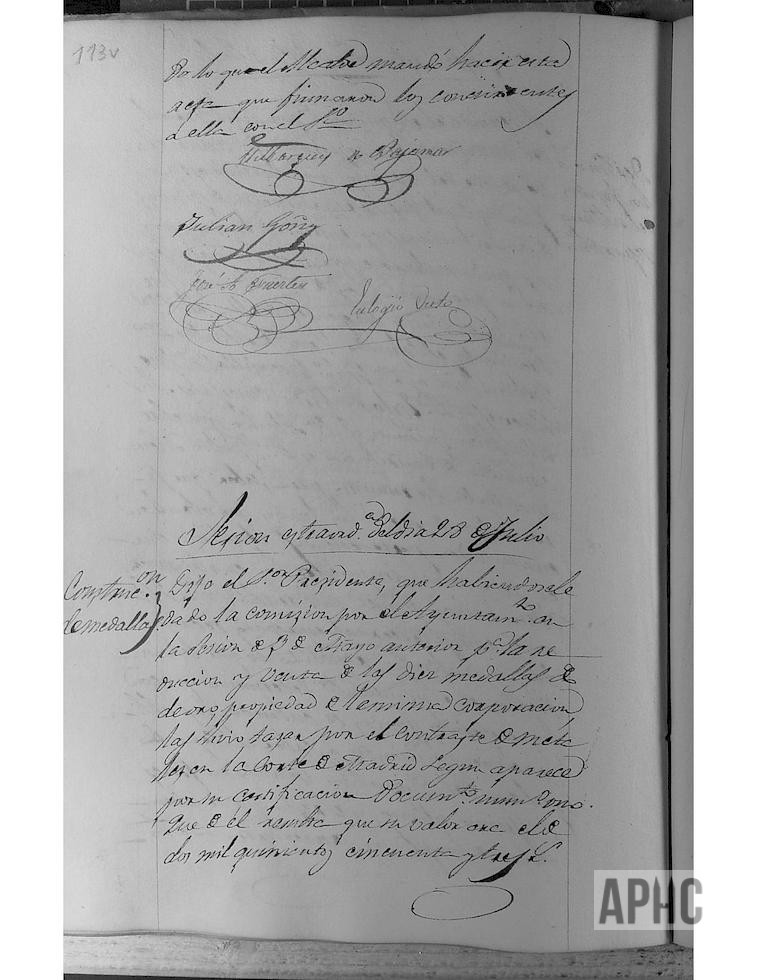 113v
Por lo que el Alcalde mandó hacer esta
acta que firmaron los concurrentes
a ella con el S.rio
Marques de Bajamar
Julian Goñy
José Fuertes
Eulogio
Sesion extraord.a del dia 28 de Julio
Construc.on
de medallas
Dijo el S.or Presidente, que habiendosele
dado la comision por el Ayuntam.to en
la sesion de 3 de Mayo anterior p.a la re
duccion y venta de las diez medallas de
de oro, propiedad de la misma corporacion
las hizo tasar por el contraste de meta
les en la Corte de Madrid segun aparece
por su certificacion Docum.to num.o uno.
Que de el resulta que su valor era el de
dos mil quinientos cincuenta y tres r.s
APHC